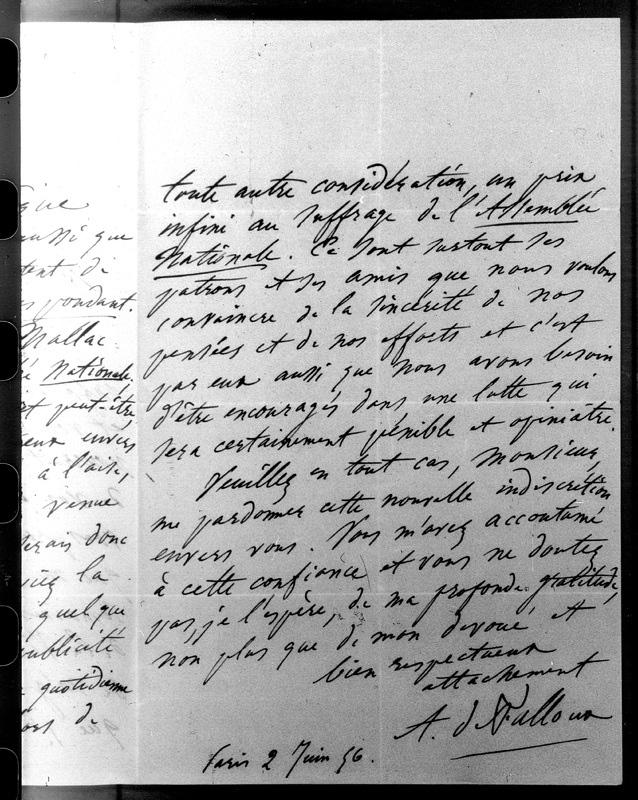 toute autre considération, un prix
infini au suffrage de l'Assemblée
Nationale. Ce sont surtout ses
patrons et ses amis que nous voulons
convaincre de la sincérité de nos
pensées et de nos efforts et c'est
par eux aussi que nous avons besoin
d'être encouragés dans une lutte qui
sera certainement pénible et opiniâtre.
Veuillez en tout cas, Monsieur,
me pardonner cette nouvelle indiscrétion
envers vous. Vous m'avez accoutumé
à cette confiance et vous ne doutez
pas, j'e l'espère, de ma profonde gratitude,
non plus que de mon dévoué et
bien respectueux
attachement
A. de Falloux
Paris 2 Juin 56.
aussi que
de
pondant.
Mallac
Nationale.
et peut-être
eux envers
à l'aise,
venue
donc
la
quelque
publicité
quotidienne
de